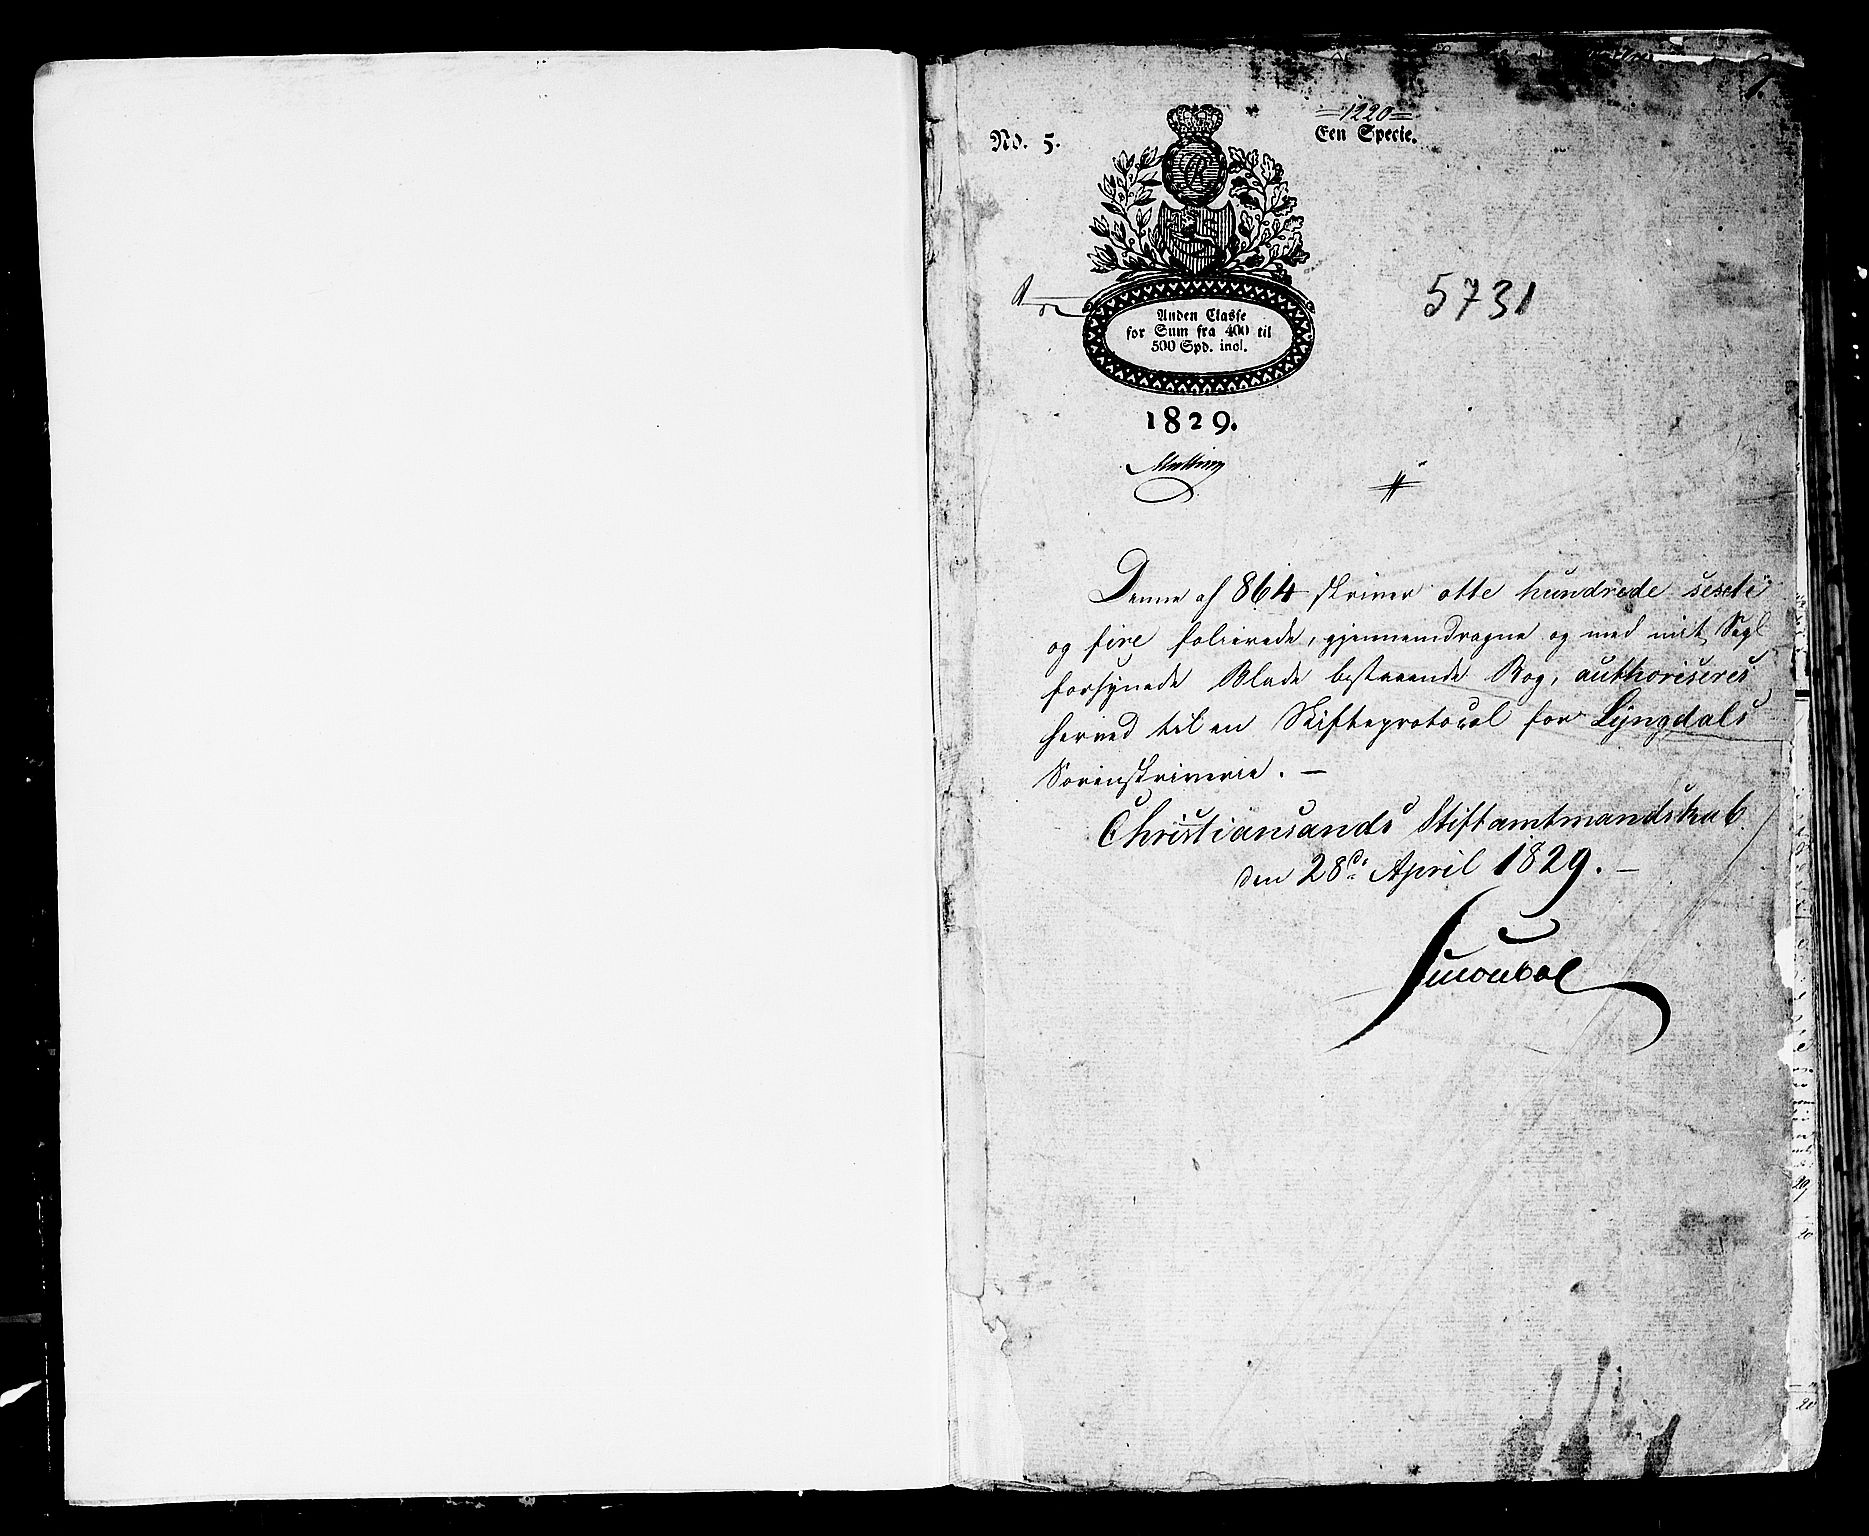 1220
No. 5.
Een Specie.
5731
Anden Classe
for Sum fra 400 til
500 Spd. incl.
1829.
Denne af 864 skriver otte hundrede sexti
og fire folierede, gjennemdragne og med mit Segl
forsynede Blade bestaaende Bog, authoriseres
herved til en Skifteprotocol for Lyngdals
Sorenskriverie. —
Christiansands Stiftamtmandskab
den 28de April 1829. —